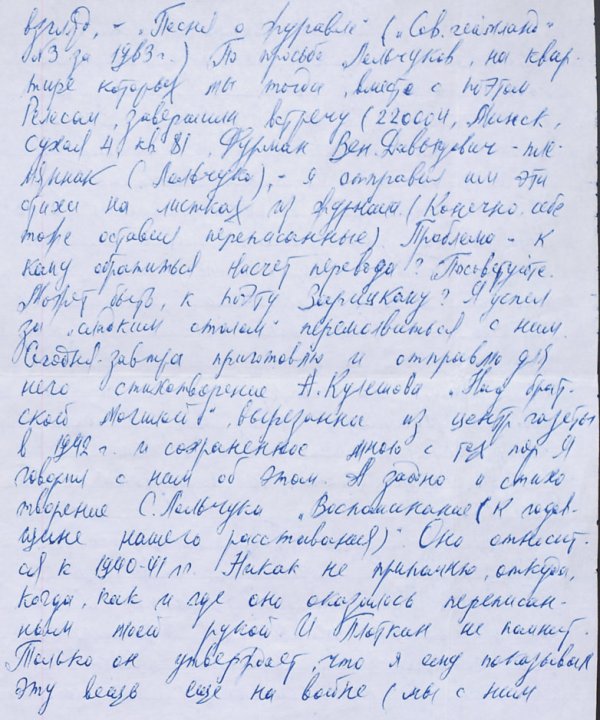 взгляд, - „Песня о журавле" („Сов. геймланд"
№3 за 1983 г.) По просьбе Лельчуков, на квар-
тире которых мы тогда, вместе с поэтом
Релесом, завершили встречу (220004, Минск,
Сухая 4, кв. 81, Фурман Вен. Давыдович - пле-
мянник С. Лельчука), - я отправил им эти
стихи на листках из журнала. (Конечно, себе
тоже оставил переписанные). Проблема - к
кому обратиться насчет перевода? Посоветуйте.
Может быть, к поэту Зарицкому? Я успел
за „сладким столом" перемолвиться с ним.
Сегодня-завтра приготовлю и отправлю для
него стихотворение А. Кулешова „Над брат-
ской могилой", вырезанное из центр. газеты
в 1942 г. и сохраненное мною с тех пор. Я
говорил с ним об этом. А заодно и стихо
творение С. Лельчука „Воспоминание (К годов-
щине нашего расставания)". Оно относит-
ся к 1940-41 гг. Никак не припомню, откуда,
когда, как и где оно оказалось переписан-
ным моей рукой. И Плоткин не помнит.
Только он утверждает, что я ему показывал
эту вещь еще на войне (мы с ним